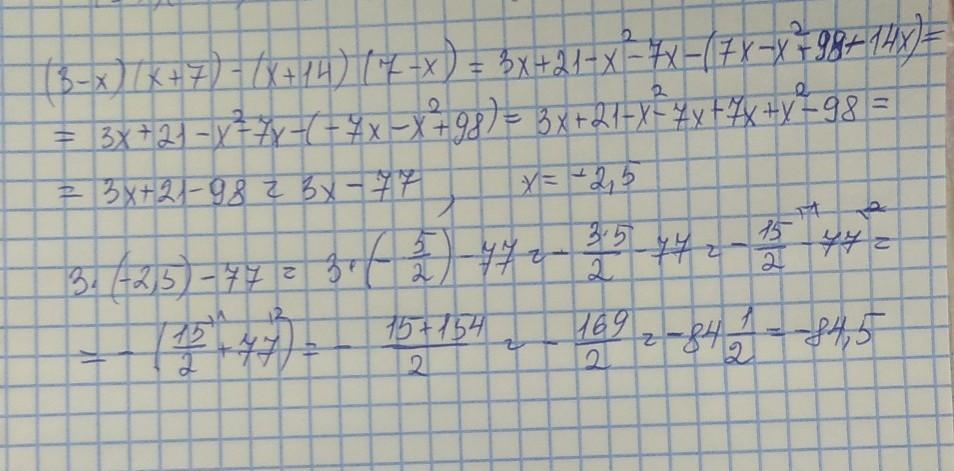 (3-x)(x+7)-(x+14)(7-x) = 3x+21-x²-7x-(7x-x²+98+14x)=
= 3x+21-x²-7x-(-7x-x²+98)= 3x+21-x²-7x+7x+x²-98 =
= 3x+21-98 = 3x-77, x=-2,5
3·(-2,5)-77 = 3·(-5/2)-77 = -3·5/2-77 = -15/2\1-77\2 =
= -(15/2\1+77\2)= -15+154/2 = -169/2 = -84 1/2 = -84,5